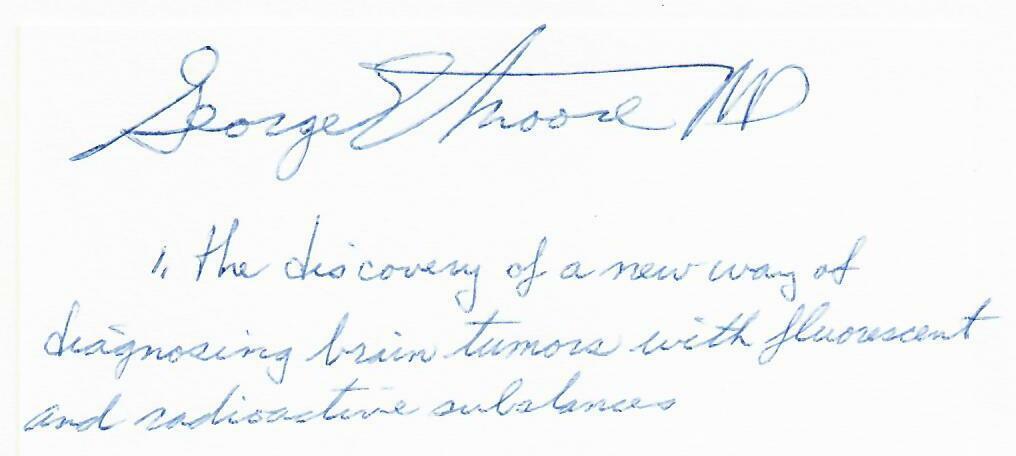 George E Moore MD
1. the discovery of a new way of
diagnosing brain tumors with fluorescent
and radioactive substances